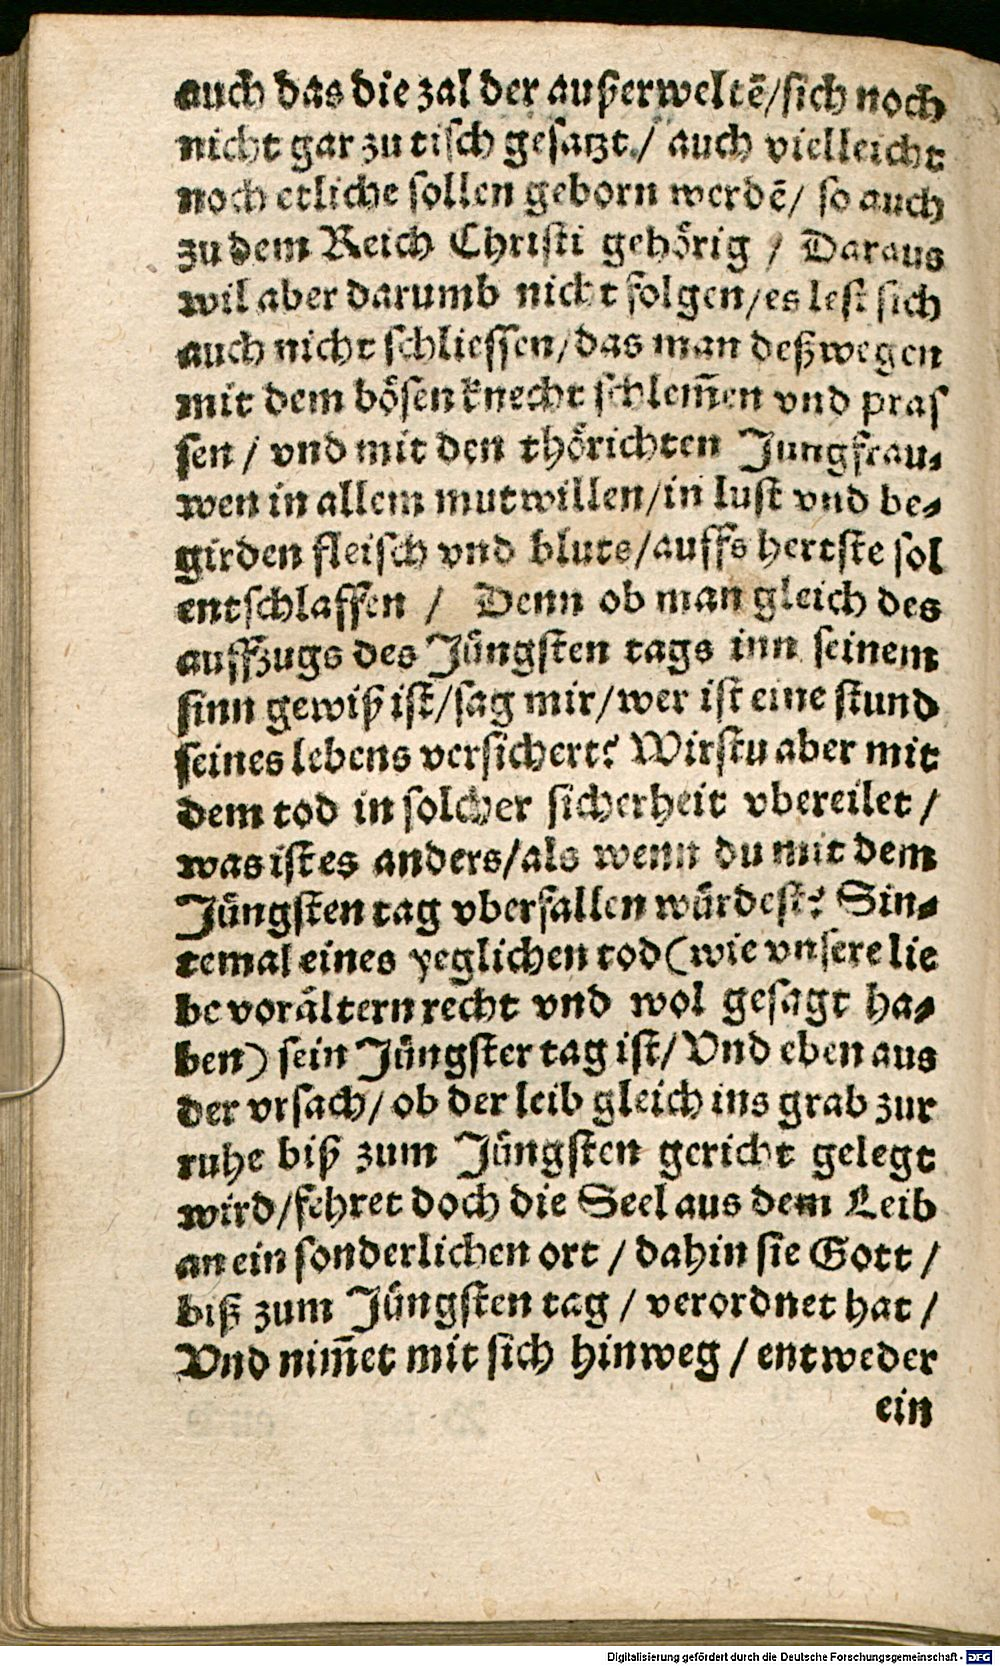 auch das die zal der außerweltē/sich noch
nicht gar zu tisch gesatzt/ auch vielleicht
noch etliche sollen geborn werdē/ so auch
zu dem Reich Christi gehörig / Daraus
wil aber darumb nicht folgen/es lest sich
auch nicht schliessen/das man deßwegen
mit dem bösen knecht schlem̄en vnd pras
sen / vnd mit den thörichten Jungfrau-
wen in allem mutwillen/in lust vnd be-
girden fleisch vnd bluts/auffs hertste sol
entschlaffen / Denn ob man gleich des
auffzugs des Jüngsten tags inn seinem
sinn gewiß ist/sag mir/wer ist eine stund
seines lebens versichert? Wirstu aber mit
dem tod in solcher sicherheit vbereilet /
was ist es anders/als wenn du mit dem
Jüngsten tag vberfallen würdest? Sin-
temal eines yeglichen tod (wie vnsere lie
be vorältern recht vnd wol gesagt ha-
ben) sein Jüngster tag ist/ Vnd eben aus
der vrsach/ ob der leib gleich ins grab zur
ruhe biß zum Jüngsten gericht gelegt
wird/fehret doch die Seel aus dem Leib
an ein sonderlichen ort / dahin sie Gott /
biß zum Jüngsten tag / verordnet hat /
Vnd nim̄et mit sich hinweg / entweder
ein
Digitalisierung gefördert durch die Deutsche Forschungsgemeinschaft - DFG